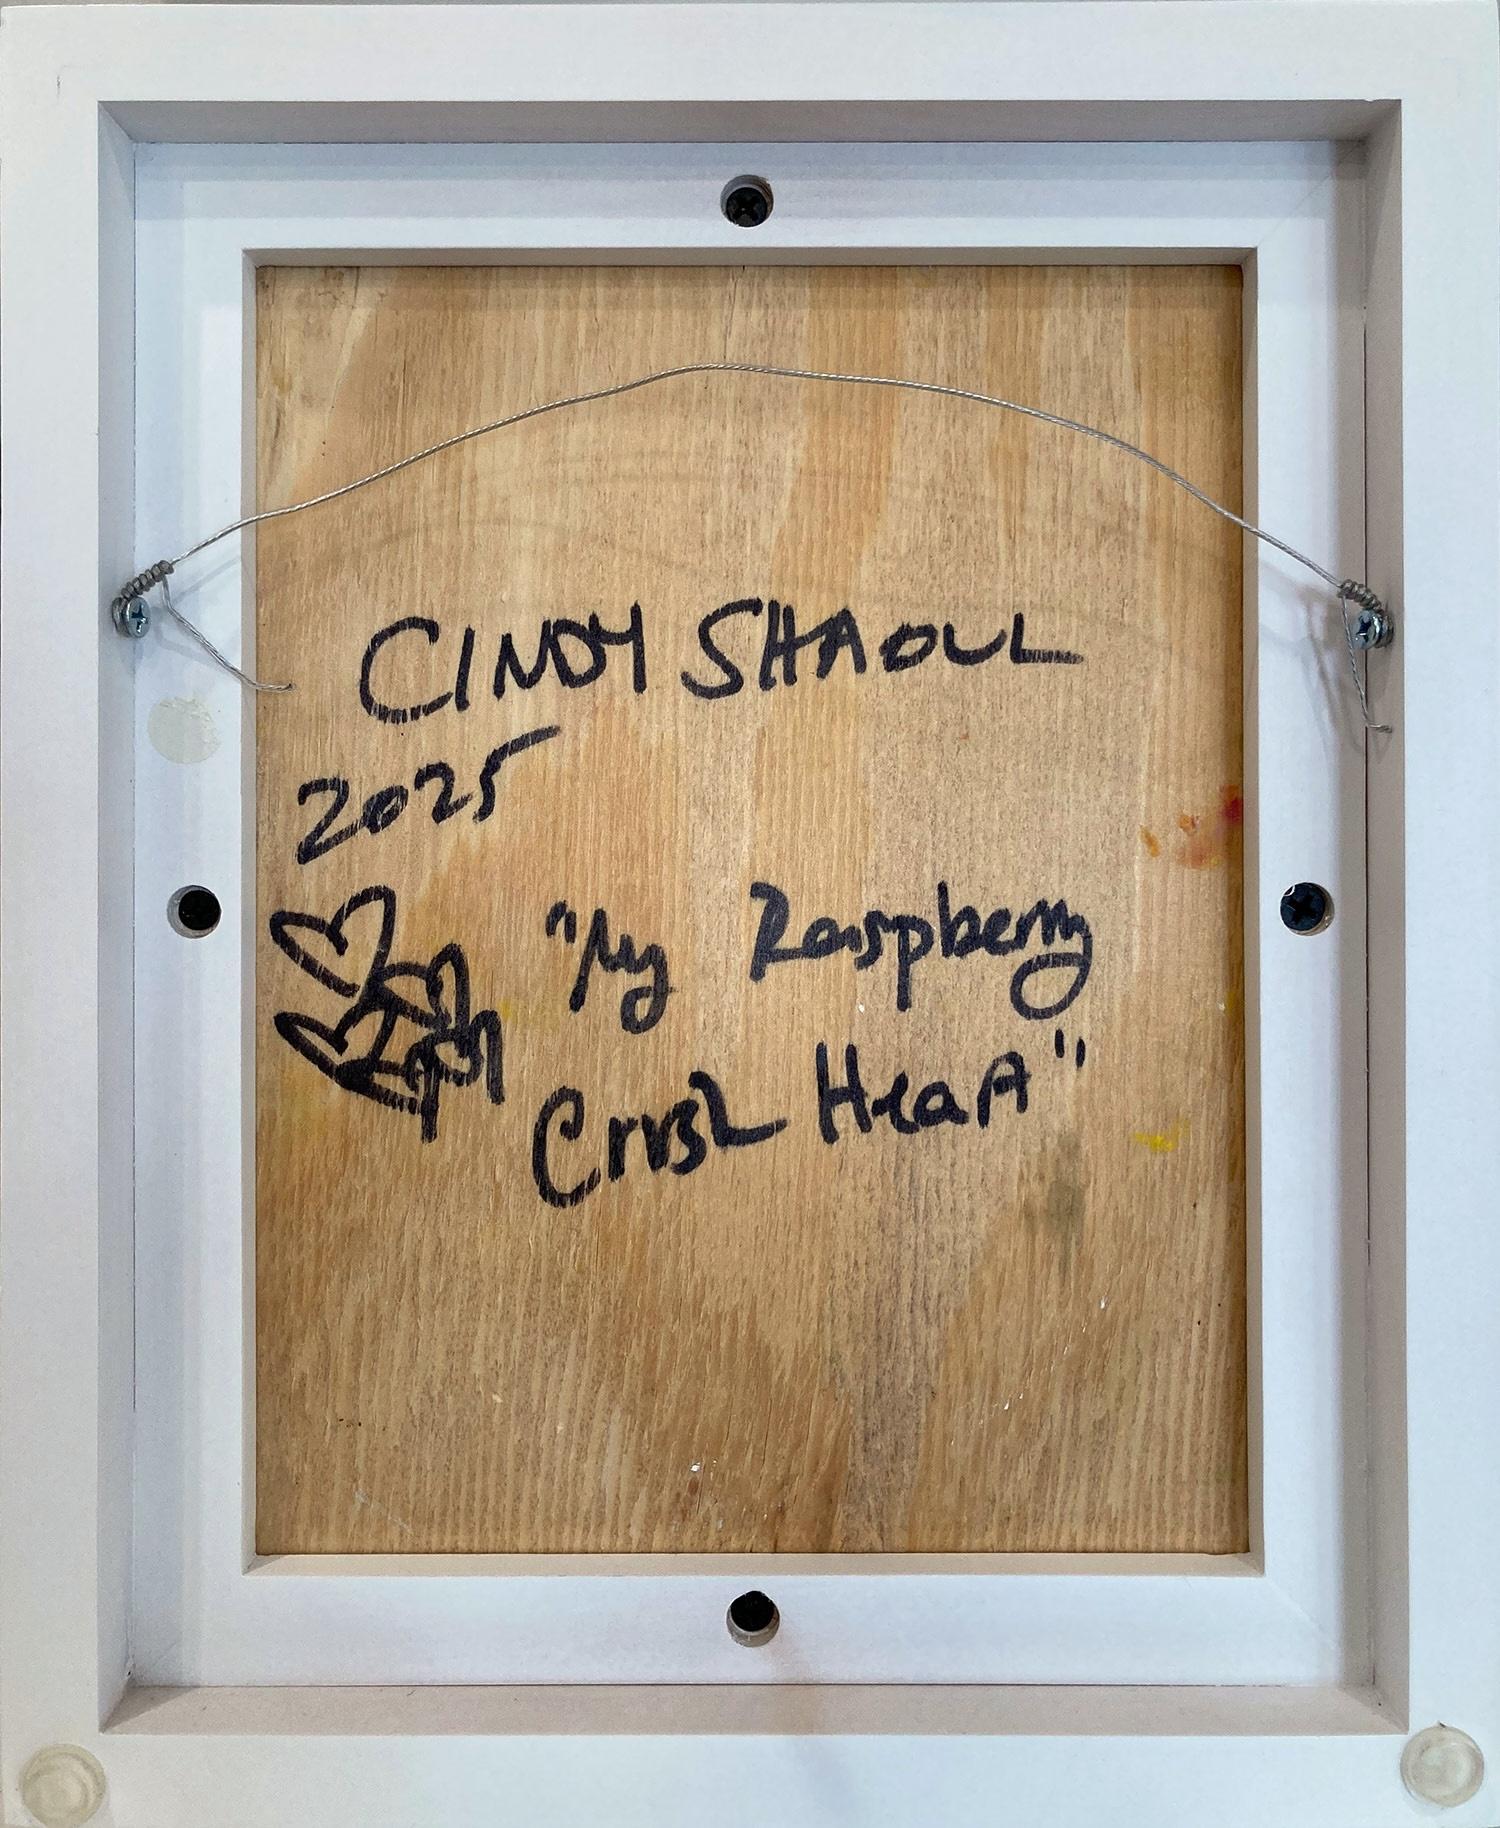 CINDY SHAOUL
2025
"My Raspberry
Crush Heart"